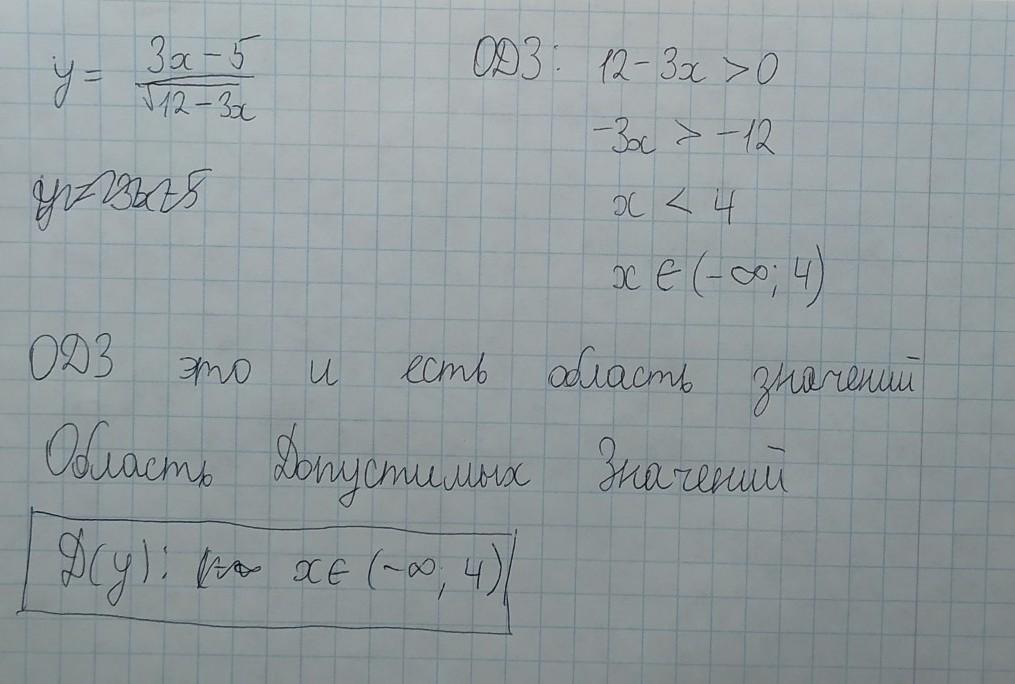 y = 3x - 5 / √12 - 3x
ОДЗ: 12 - 3x > 0
-3x > -12
x < 4
x ∈ (-∞; 4)
ОДЗ это и есть область значений
Область Допустимых Значений
D(y): x ∈ (-∞; 4)